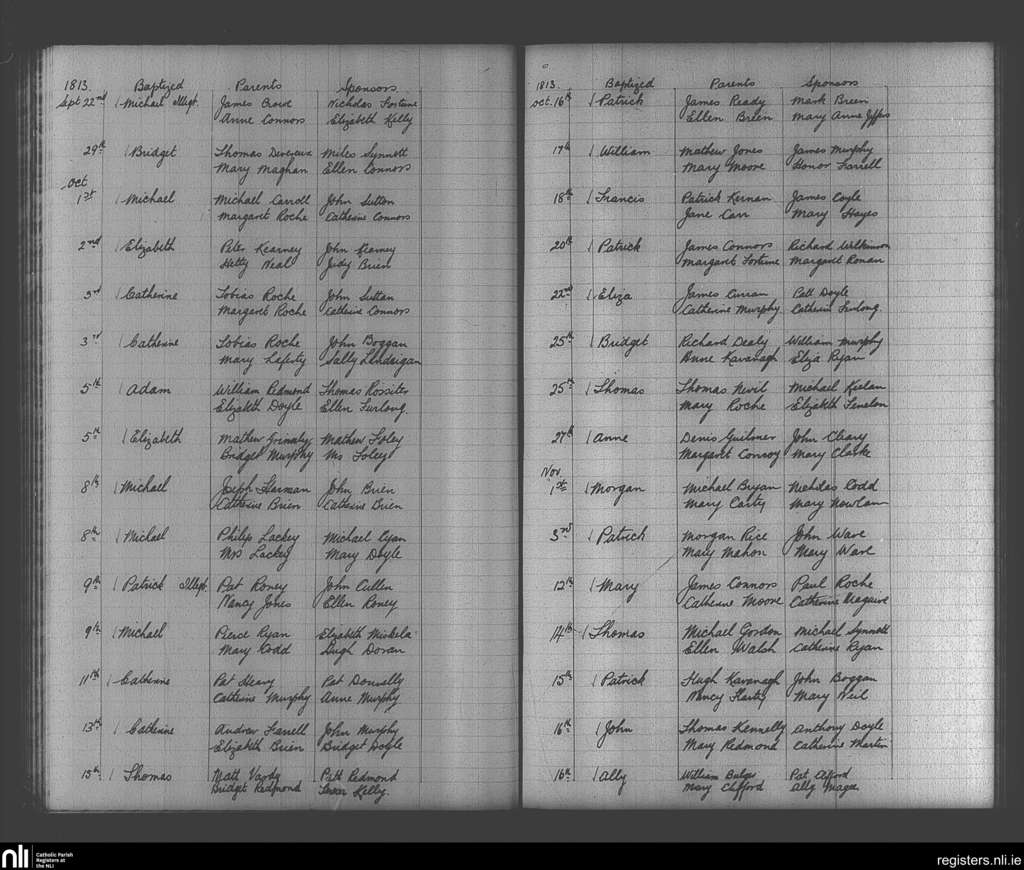 1813. Baptized Parents Sponsors
Sept 22nd 1 Michael Illegt. James Nicholas Fortune
Anne Connors Elizabeth Kelly
29th 1 Bridget Thomas Devereux Miles Synnott
Mary Maghan Ellen Connors
Oct
1st 1 Michael Michael Carroll John Sutton
Margaret Roche Catherine Connors
2nd 1 Elizabeth Peter Kearney John Kearney
Hetty Neal Judy Brien
3rd 1 Catherine Tobias Roche John Sutton
Margaret Roche Catherine Connors
3rd 1 Catherine Tobias Roche John Boggan
Mary Sally
5th 1 Adam William Redmond Thomas Rossiter
Elizabeth Doyle Ellen Furlong.
5th 1 Elizabeth Mathew Mathew Foley
Bridget Murphy Mrs Foley
8th 1 Michael Joseph Harman John Brien
Catherine Brien Catherine Brien
8th 1 Michael Philip Lackey Michael
Mrs Lackey Mary Doyle
9th 1 Patrick Illegt. Pat Roney John Cullen
Nancy Jones Ellen Roney
9th 1 Michael Pierce Ryan Elizabeth
Mary Codd Hugh Doran
11th 1 Catherine Pat Heavy Pat Donnelly
Catherine Murphy Anne Murphy
13th 1 Catherine Andrew Farrell John Murphy
Elizabeth Brien Bridget Doyle
15th 1 Thomas Matt Vardy Patt Redmond
Bridget Redmond Kelly.
1813. Baptized Parents Sponsors
Oct. 16th 1 Patrick James Ready Mark Breen
Ellen Breen Mary Anne
17th 1 William Mathew Jones James Murphy
Mary Moore Honor Farrell
18th 1 Francis Patrick Kernan James Coyle
Jane Carr Mary Hayes
20th 1 Patrick James Connors Richard Wilkinson
Margaret Fortune Margaret Ronan
22nd 1 Eliza James Curran Patt Doyle
Catherine Murphy Catherine Furlong.
25th 1 Bridget Richard Dealy William Murphy
Anne Kavanagh Eliza Ryan
25th 1 Thomas Thomas Nevil Michael Keelan
Mary Roche Elizabeth Fenelon
27th 1 Anne Denis John Cleary
Margaret Conroy Mary Clarke
Nov.
1st 1 Morgan Michael Bryan Nicholas Codd
Mary Carty Mary Nowlan
3rd 1 Patrick Morgan Rice John Ware
Mary Mahon Mary Ware
12th 1 Mary James Connors Paul Roche
Catherine Moore Catherine
14th 1 Thomas Michael Gordon Michael Synnott
Ellen Walsh Catherine Ryan
15th 1 Patrick Hugh Kavanagh John Boggan
Nancy Mary Neil
16th 1 John Thomas Kennelly Anthony Doyle
Mary Redmond Catherine Martin
16th 1 Ally William Bulger Pat
Mary Clifford Ally Magee
nli
Catholic Parish
Registers at
the NLI
registers.nli.ie